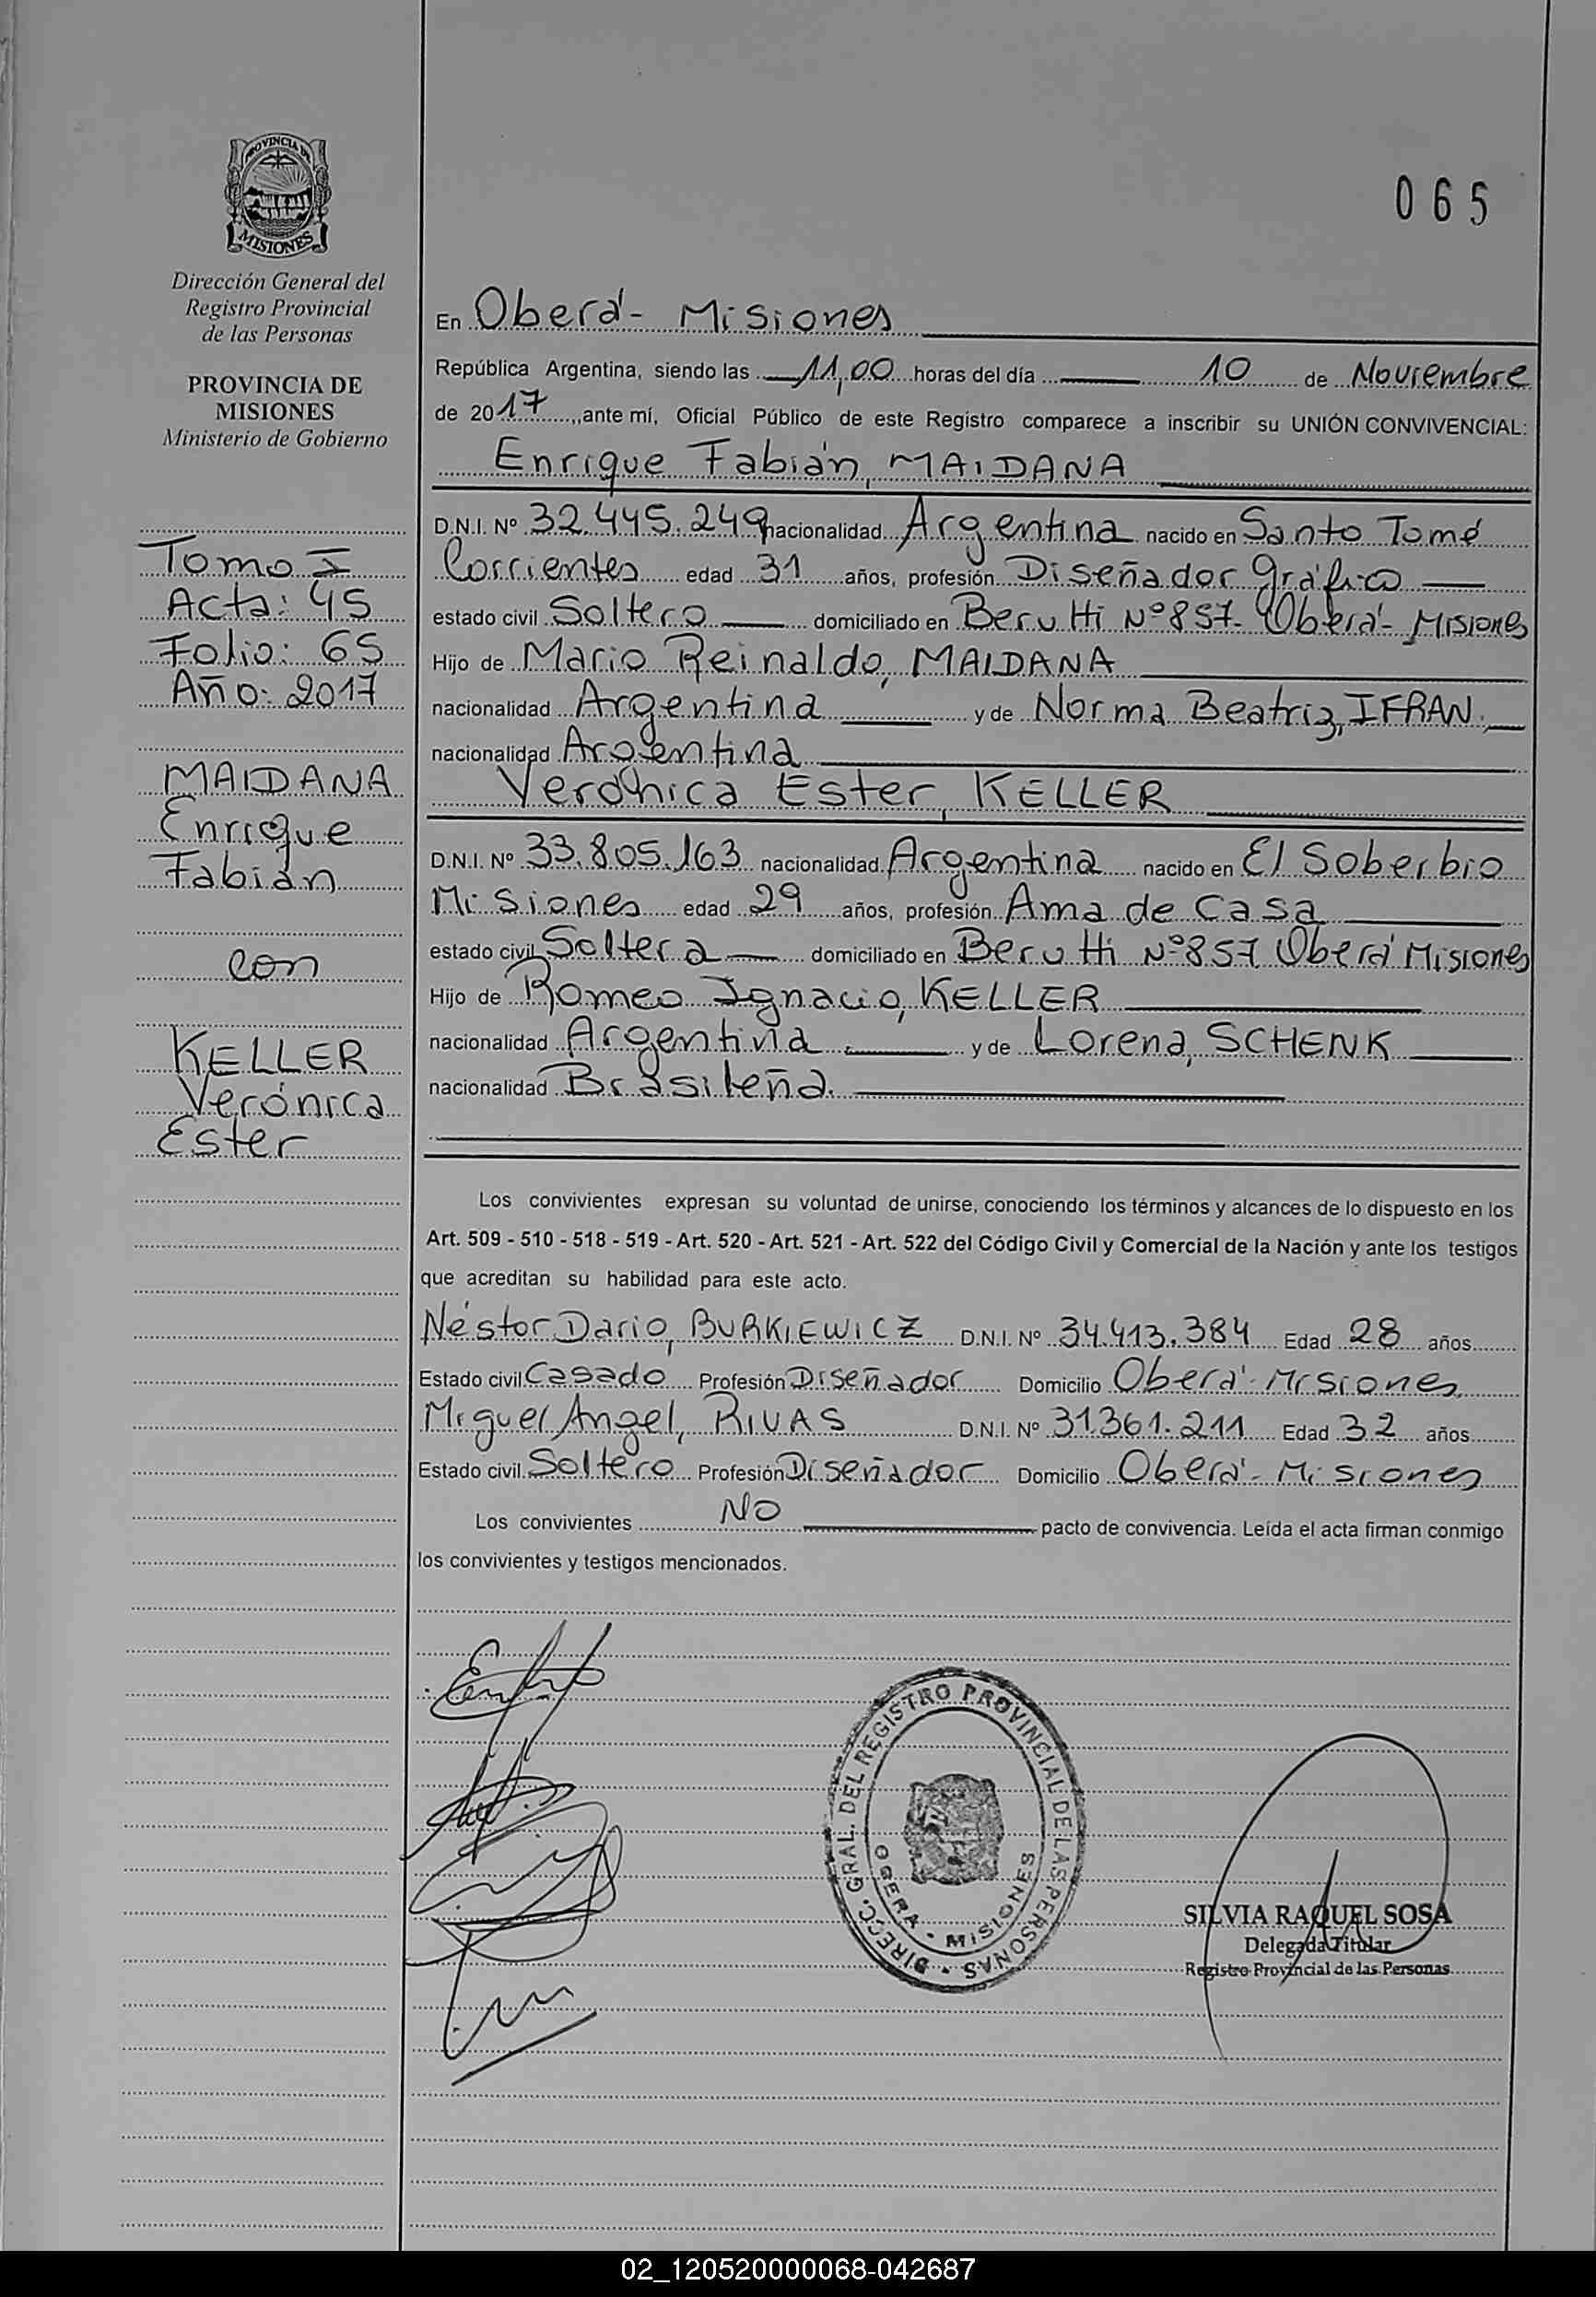 PROVINCIA DE
MISIONES
Dirección General del
Registro Provincial
de las Personas
PROVINCIA DE
MISIONES
Ministerio de Gobierno
Tomo I
Acta: 45
Folio: 65
Año: 2017
MAIDANA
Enrique
Fabián
con
KELLER
Verónica
Ester
065
En Oberá - Misiones
República Argentina, siendo las 11,00 horas del día 10 de Noviembre
de 2017, ante mí, Oficial Público de este Registro comparece a inscribir su UNIÓN CONVIVENCIAL:
Enrique Fabián, MAIDANA
D.N.I. Nº 32.445.249 nacionalidad Argentina nacido en Santo Tomé
Corrientes edad 31 años, profesión Diseñador gráfico
estado civil Soltero domiciliado en Berutti Nº 857- Oberá - Misiones
Hijo de Mario Reinaldo, MAIDANA
nacionalidad Argentina y de Norma Beatriz, IFRAN,
nacionalidad Argentina
Verónica Ester, KELLER
D.N.I. Nº 33.805.163 nacionalidad Argentina nacido en El Soberbio
Misiones edad 29 años, profesión Ama de Casa
estado civil Soltera domiciliado en Berutti Nº 857 Oberá Misiones
Hijo de Romeo Ignacio, KELLER
nacionalidad Argentina y de Lorena, SCHENK
nacionalidad Brasileña.
Los convivientes expresan su voluntad de unirse, conociendo los términos y alcances de lo dispuesto en los
Art. 509 - 510 - 518 - 519 - Art. 520 - Art. 521 - Art. 522 del Código Civil y Comercial de la Nación y ante los testigos
que acreditan su habilidad para este acto.
Néstor Dario, BURKIEWICZ D.N.I. Nº 34.413.384 Edad 28 años
Estado civil Casado Profesión Diseñador Domicilio Oberá - Misiones
Miguel Angel, RIVAS D.N.I. Nº 31.361.211 Edad 32 años
Estado civil Soltero Profesión Diseñador Domicilio Oberá - Misiones
Los convivientes NO pacto de convivencia. Leída el acta firman conmigo
los convivientes y testigos mencionados.
DIRECC. GRAL. DEL REGISTRO PROVINCIAL DE LAS PERSONAS
OBERA - MISIONES
SILVIA RAQUEL SOSA
Delegada Titular
Registro Provincial de las Personas
02_120520000068-042687